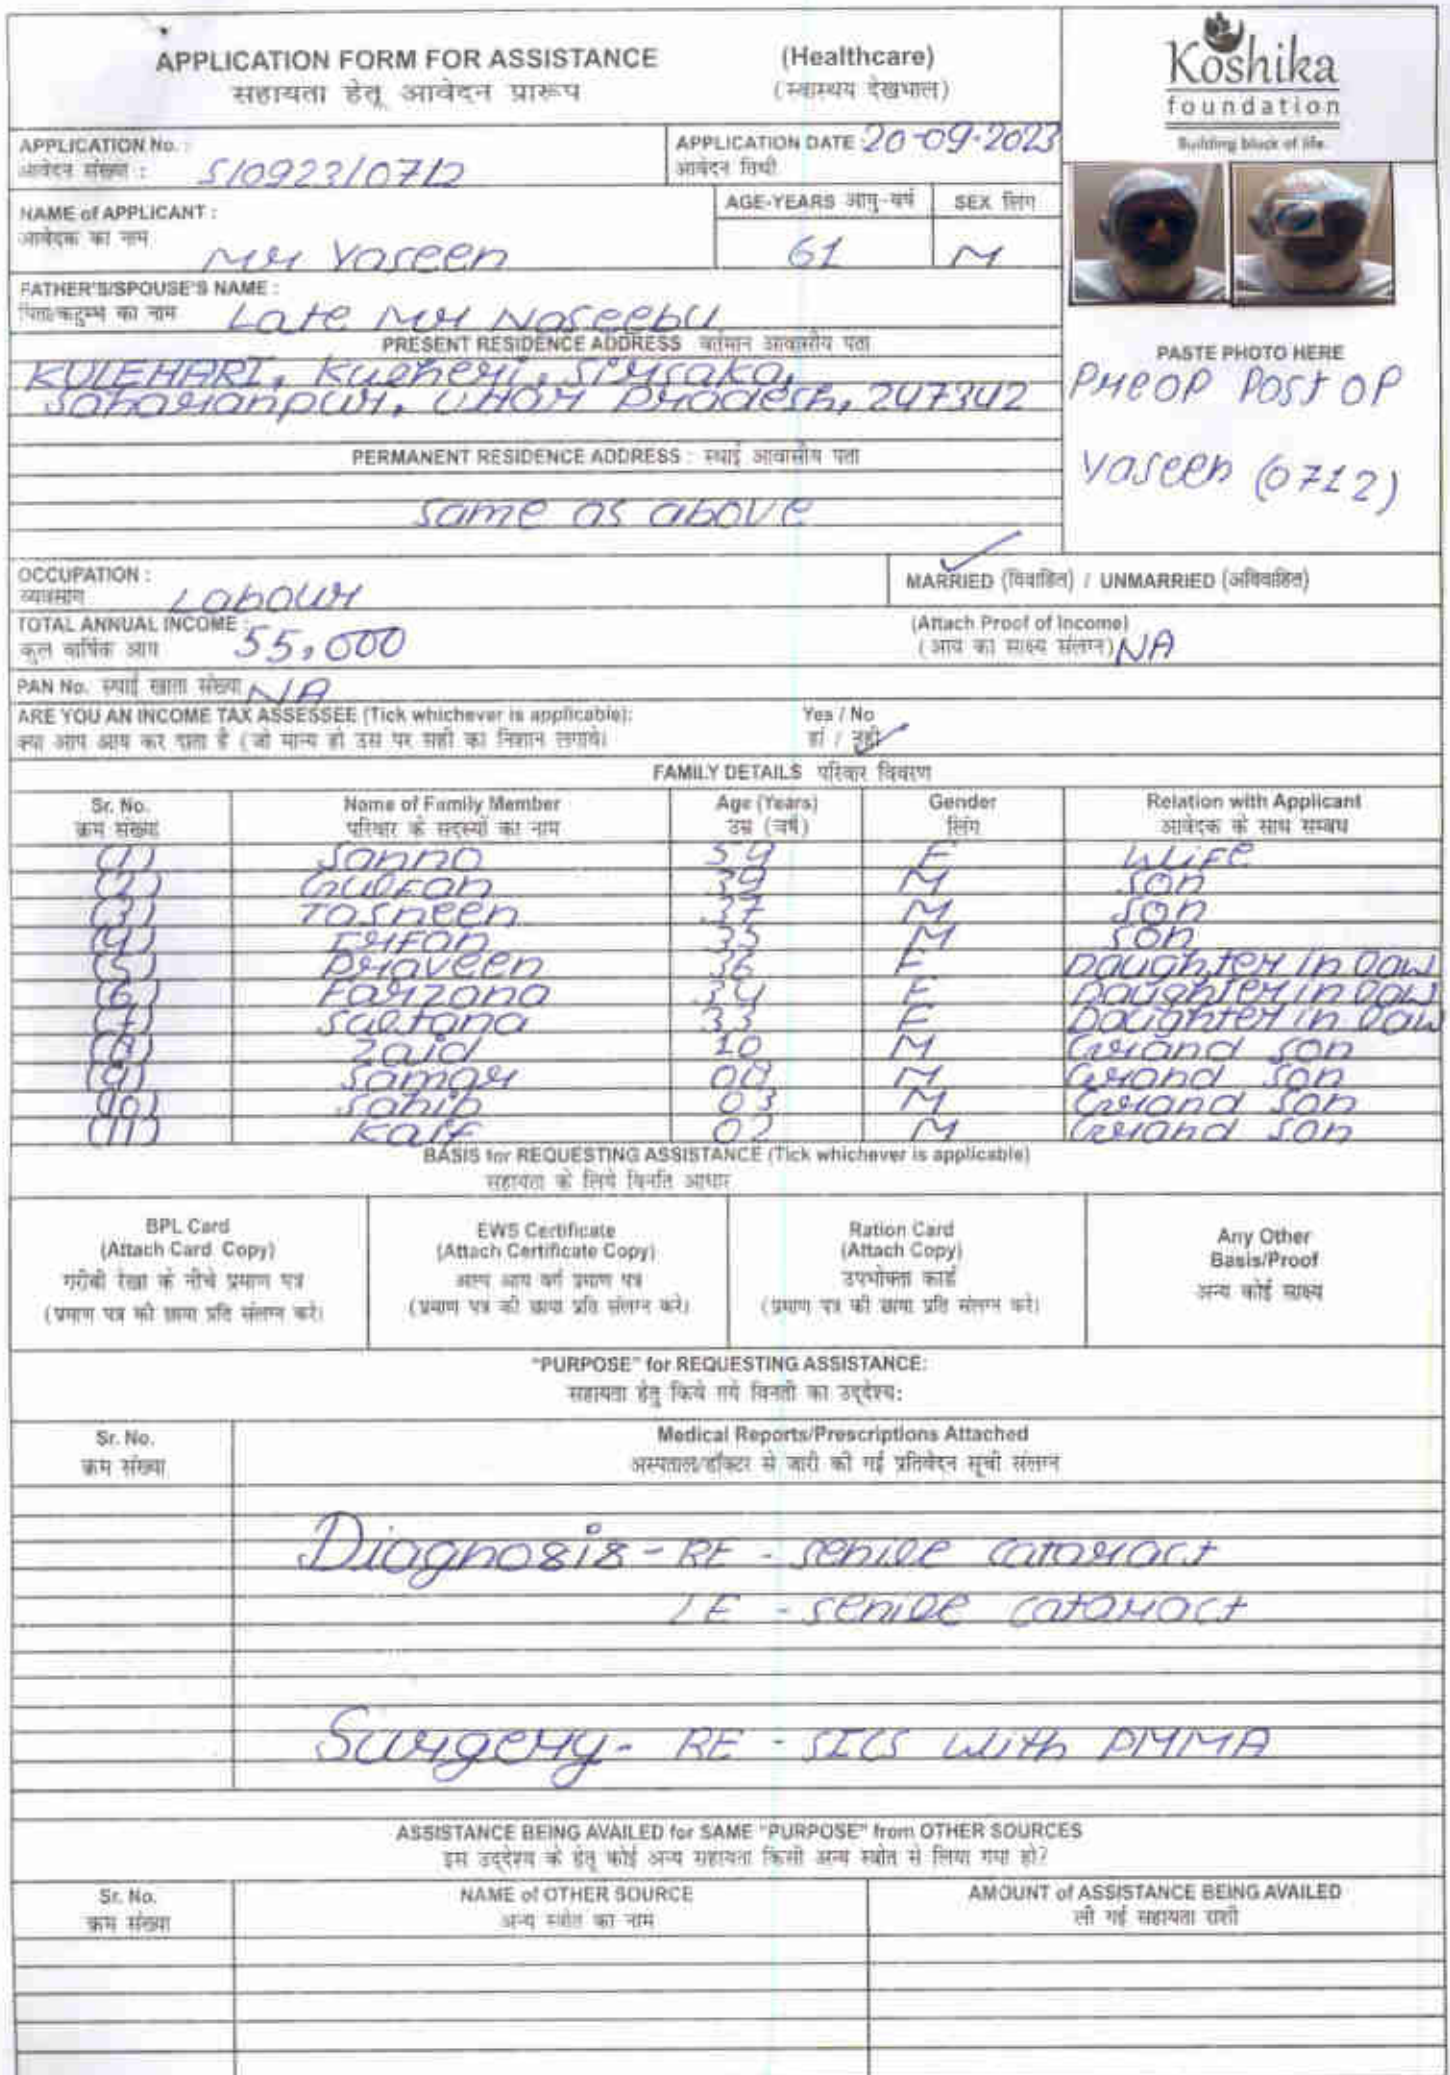 APPLICATION FORM FOR ASSISTANCE (Healthcare)
सहायता हेतू आवेदन प्रारूप (स्वास्थय देखभाल)
Koshika
foundation
Building block of life
APPLICATION No. :
आवेदन संख्या : S/0923/0712
APPLICATION DATE : 20-09-2023
आवेदन तिथी
NAME of APPLICANT :
आवेदक का नाम Mr Yaseen
AGE-YEARS आयु-वर्ष 61
SEX लिंग M
FATHER'S/SPOUSE'S NAME :
पिता/कटुम्भ का नाम Late Mr Naseebu
PRESENT RESIDENCE ADDRESS वर्तमान आवासीय पता
KULEHARI, Kulheri, Sirsaka,
Saharanpur, Uttar Pradesh, 247342
PERMANENT RESIDENCE ADDRESS : स्थाई आवासीय पता
same as above
PASTE PHOTO HERE
Preop Post op
Yaseen (0712)
OCCUPATION :
व्यवसाय Labour
MARRIED (विवाहित) / UNMARRIED (अविवाहित)
TOTAL ANNUAL INCOME :
कुल वार्षिक आय 55,000
(Attach Proof of Income)
(आय का साक्ष्य संलग्न) NA
PAN No. स्थाई खाता संख्या NA
ARE YOU AN INCOME TAX ASSESSEE (Tick whichever is applicable): Yes / No
क्या आप आय कर दाता है (जो मान्य हो उस पर सही का निशान लगाये। हां / नहीं
FAMILY DETAILS परिवार विवरण
Sr. No. Name of Family Member Age (Years) Gender Relation with Applicant
क्रम संख्या परिवार के सदस्यों का नाम उम्र (वर्ष) लिंग आवेदक के साथ सम्बध
(1) Sanno 59 F Wife
(2) Gulfan 39 M Son
(3) Tasneen 37 M Son
(4) Erfan 35 M Son
(5) Praveen 36 F Daughter in law
(6) Farzana 34 F Daughter in law
(7) Sultana 33 F Daughter in law
(8) Zaid 10 M Grand son
(9) Samar 08 M Grand son
(10) Sahib 03 M Grand son
(11) Kaif 02 M Grand son
BASIS for REQUESTING ASSISTANCE (Tick whichever is applicable)
सहायता के लिये विनति आधार
BPL Card
(Attach Card Copy)
गरीबी रेखा के नीचे प्रमाण पत्र
(प्रमाण पत्र की छाया प्रति संलग्न करे)
EWS Certificate
(Attach Certificate Copy)
अल्प आय वर्ग प्रमाण पत्र
(प्रमाण पत्र की छाया प्रति संलग्न करे)
Ration Card
(Attach Copy)
उपभोक्ता कार्ड
(प्रमाण पत्र की छाया प्रति संलग्न करे)
Any Other
Basis/Proof
अन्य कोई साक्ष्य
"PURPOSE" for REQUESTING ASSISTANCE:
सहायता हेतु किये गये विनती का उद्देश्य:
Sr. No. Medical Reports/Prescriptions Attached
क्रम संख्या अस्पताल/डॉक्टर से जारी की गई प्रतिवेदन सूची संलग्न
Diagnosis - RE - senile cataract
LE - senile cataract
Surgery - RE - SICS with PMMA
ASSISTANCE BEING AVAILED for SAME "PURPOSE" from OTHER SOURCES
इस उद्देश्य के हेतु कोई अन्य सहायता किसी अन्य स्त्रोत से लिया गया हो?
Sr. No. NAME of OTHER SOURCE AMOUNT of ASSISTANCE BEING AVAILED
क्रम संख्या अन्य स्त्रोत का नाम ली गई सहायता राशी